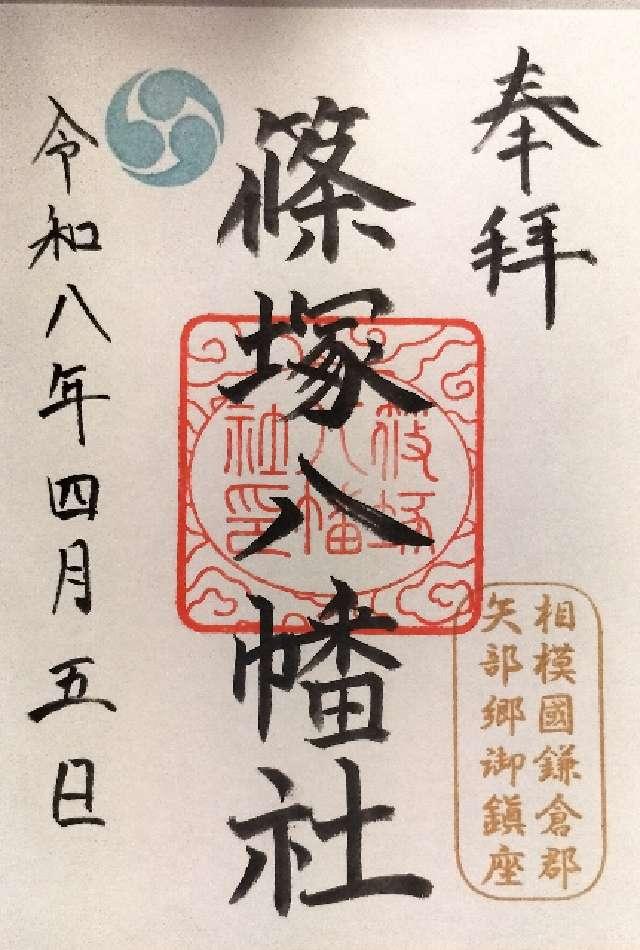 奉拝
相模國鎌倉郡
矢部郷御鎮座
篠塚八幡社
社印
令和八年四月五日